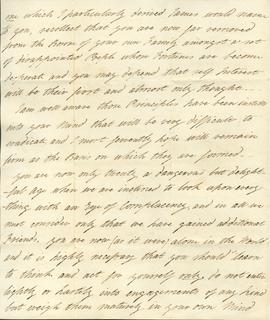 one which I particularly desired James would name
to you, recollect that you are now far removed
from the Bosom of your own Family amongst a set
of disappointed People whose Fortunes are become
desperate and you may depend that self Interest
will be their first and almost only thought
I am well aware those Principles have been
into your Mind that will be very difficult to
eradicate and I most fervently hope will remain
firm as the Basis on which they are formed
You are now only twenty a dangerous but delight-
ful age when we are inclined to look upon every
thing with an Eye of Complacency and in all we
meet consider only that we have gained additional
Friends. you are now as it were alone in the World
and it is highly necessary that you should learn
to think and act for yourself only, do not enter
lightly or hastily into engagements of any kind
but weigh them maturely in your own Mind